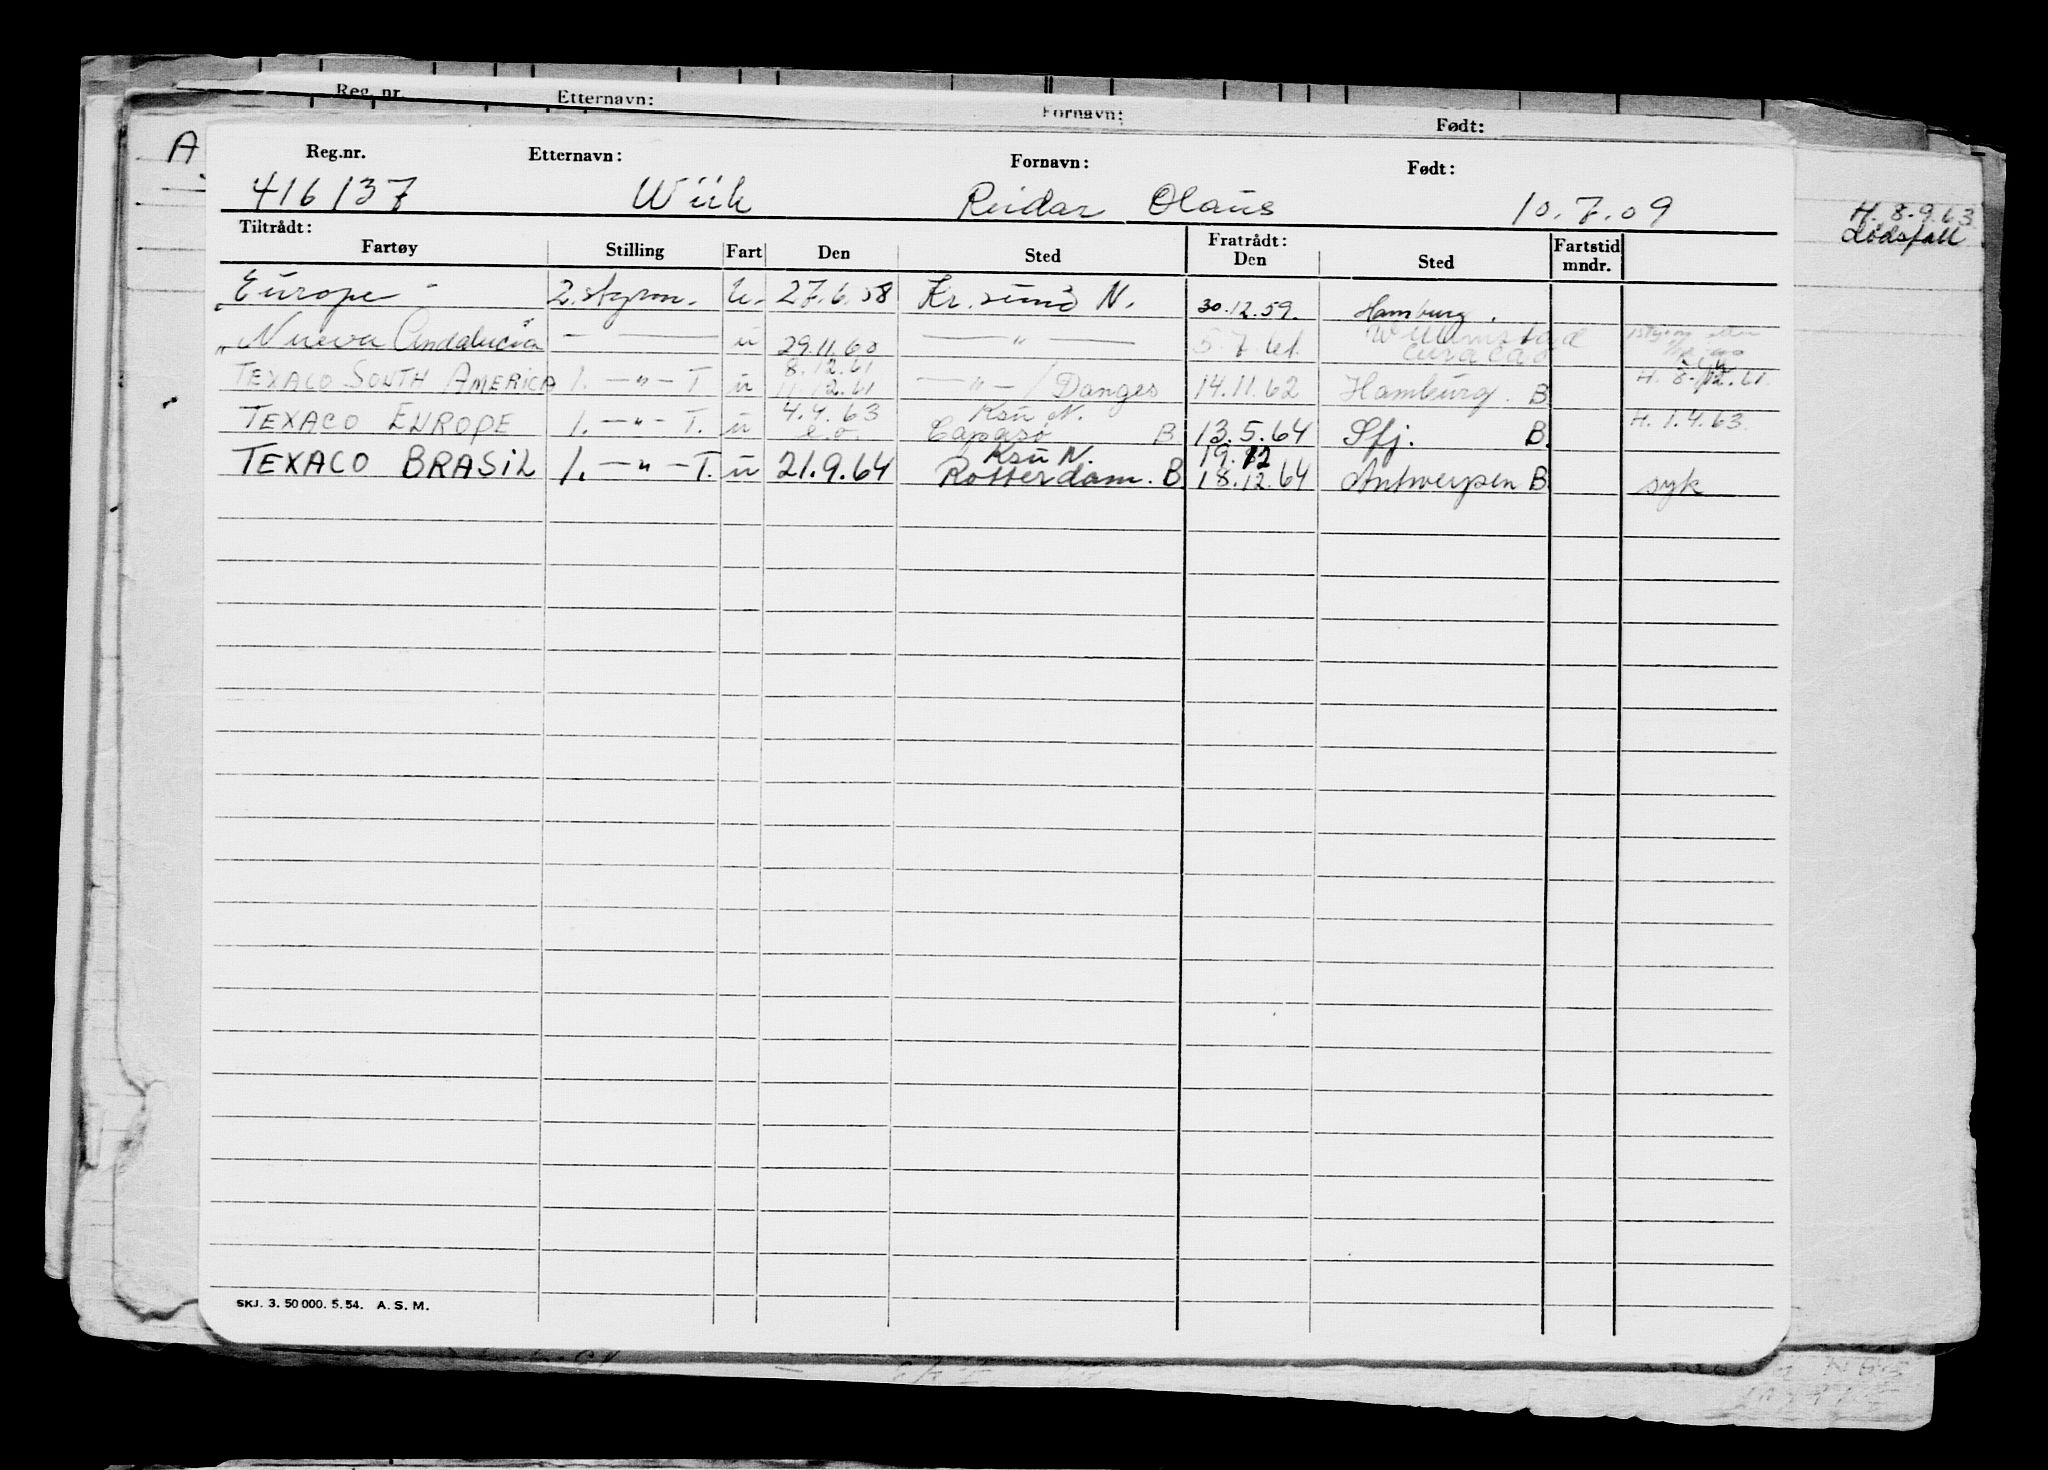 Reg. nr. Etternavn: Fornavn: Født:
A
Reg.nr. Etternavn: Fornavn: Født:
416137 Wiik Reidar Olaus 10.7.09
H. 8.9.63
dødsfall
Tiltrådt: Fratrådt:
Fartøy Stilling Fart Den Sted Den Sted Fartstid mndr.
Europe 2. styrm. u. 27.6.58 Kr.sund N. 30.12.59. Hamburg.
" Nueva Andalucia — u 29.11.60 — " — 5.7.61. Willemstad Curacao
TEXACO SOUTH AMERICA 1. — " — T u 8.12.61 11.12.61 — " — / Donges 14.11.62 Hamburg. B H. 8.12.61.
TEXACO EUROPE 1. — " — T. u 4.4.63 Ksu N. B 13.5.64 Sfj. B. H. 1.4.63.
TEXACO BRASIL 1. — " — T. u 21.9.64 Ksu N. Rotterdam. B. 19.12 18.12.64 Antwerpen B syk
SKJ. 3. 50 000. 5. 54. A. S. M.